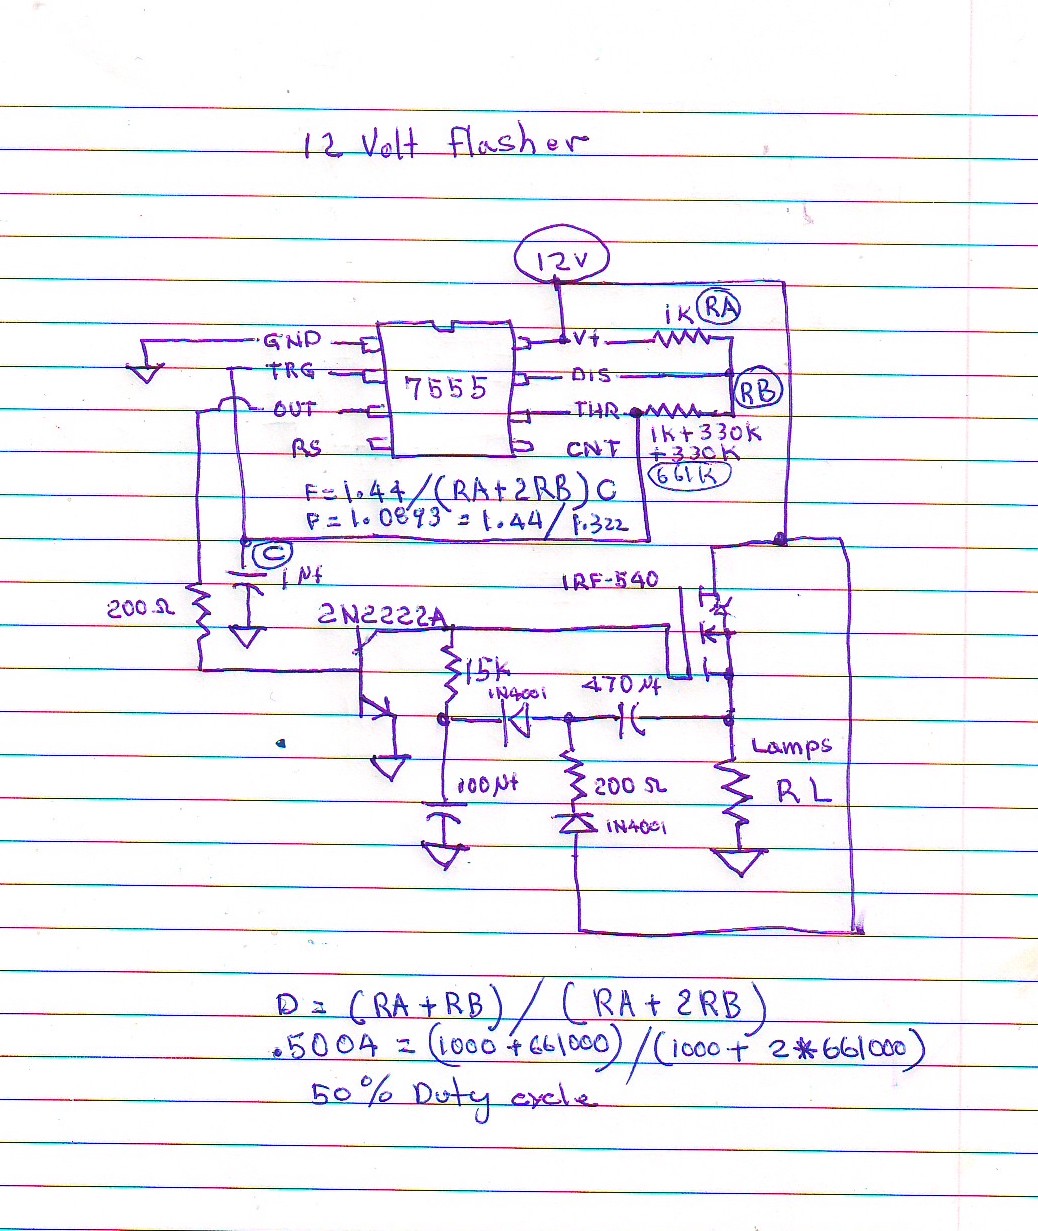 12 Volt flasher
12V
1K RA
GND V+
TRG 7555 DIS
RB
OUT THR
1K+330K
RS CNT +330K
661K
F=1.44/(RA+2RB)C
F=1.0893 = 1.44/1.322
C
1µf
IRF-540
200Ω
2N2222A
15K
470µf
1N4001
Lamps
100µf 200Ω RL
1N4001
D = (RA+RB)/(RA+2RB)
.5004 = (1000+661000)/(1000+2*661000)
50% Duty cycle